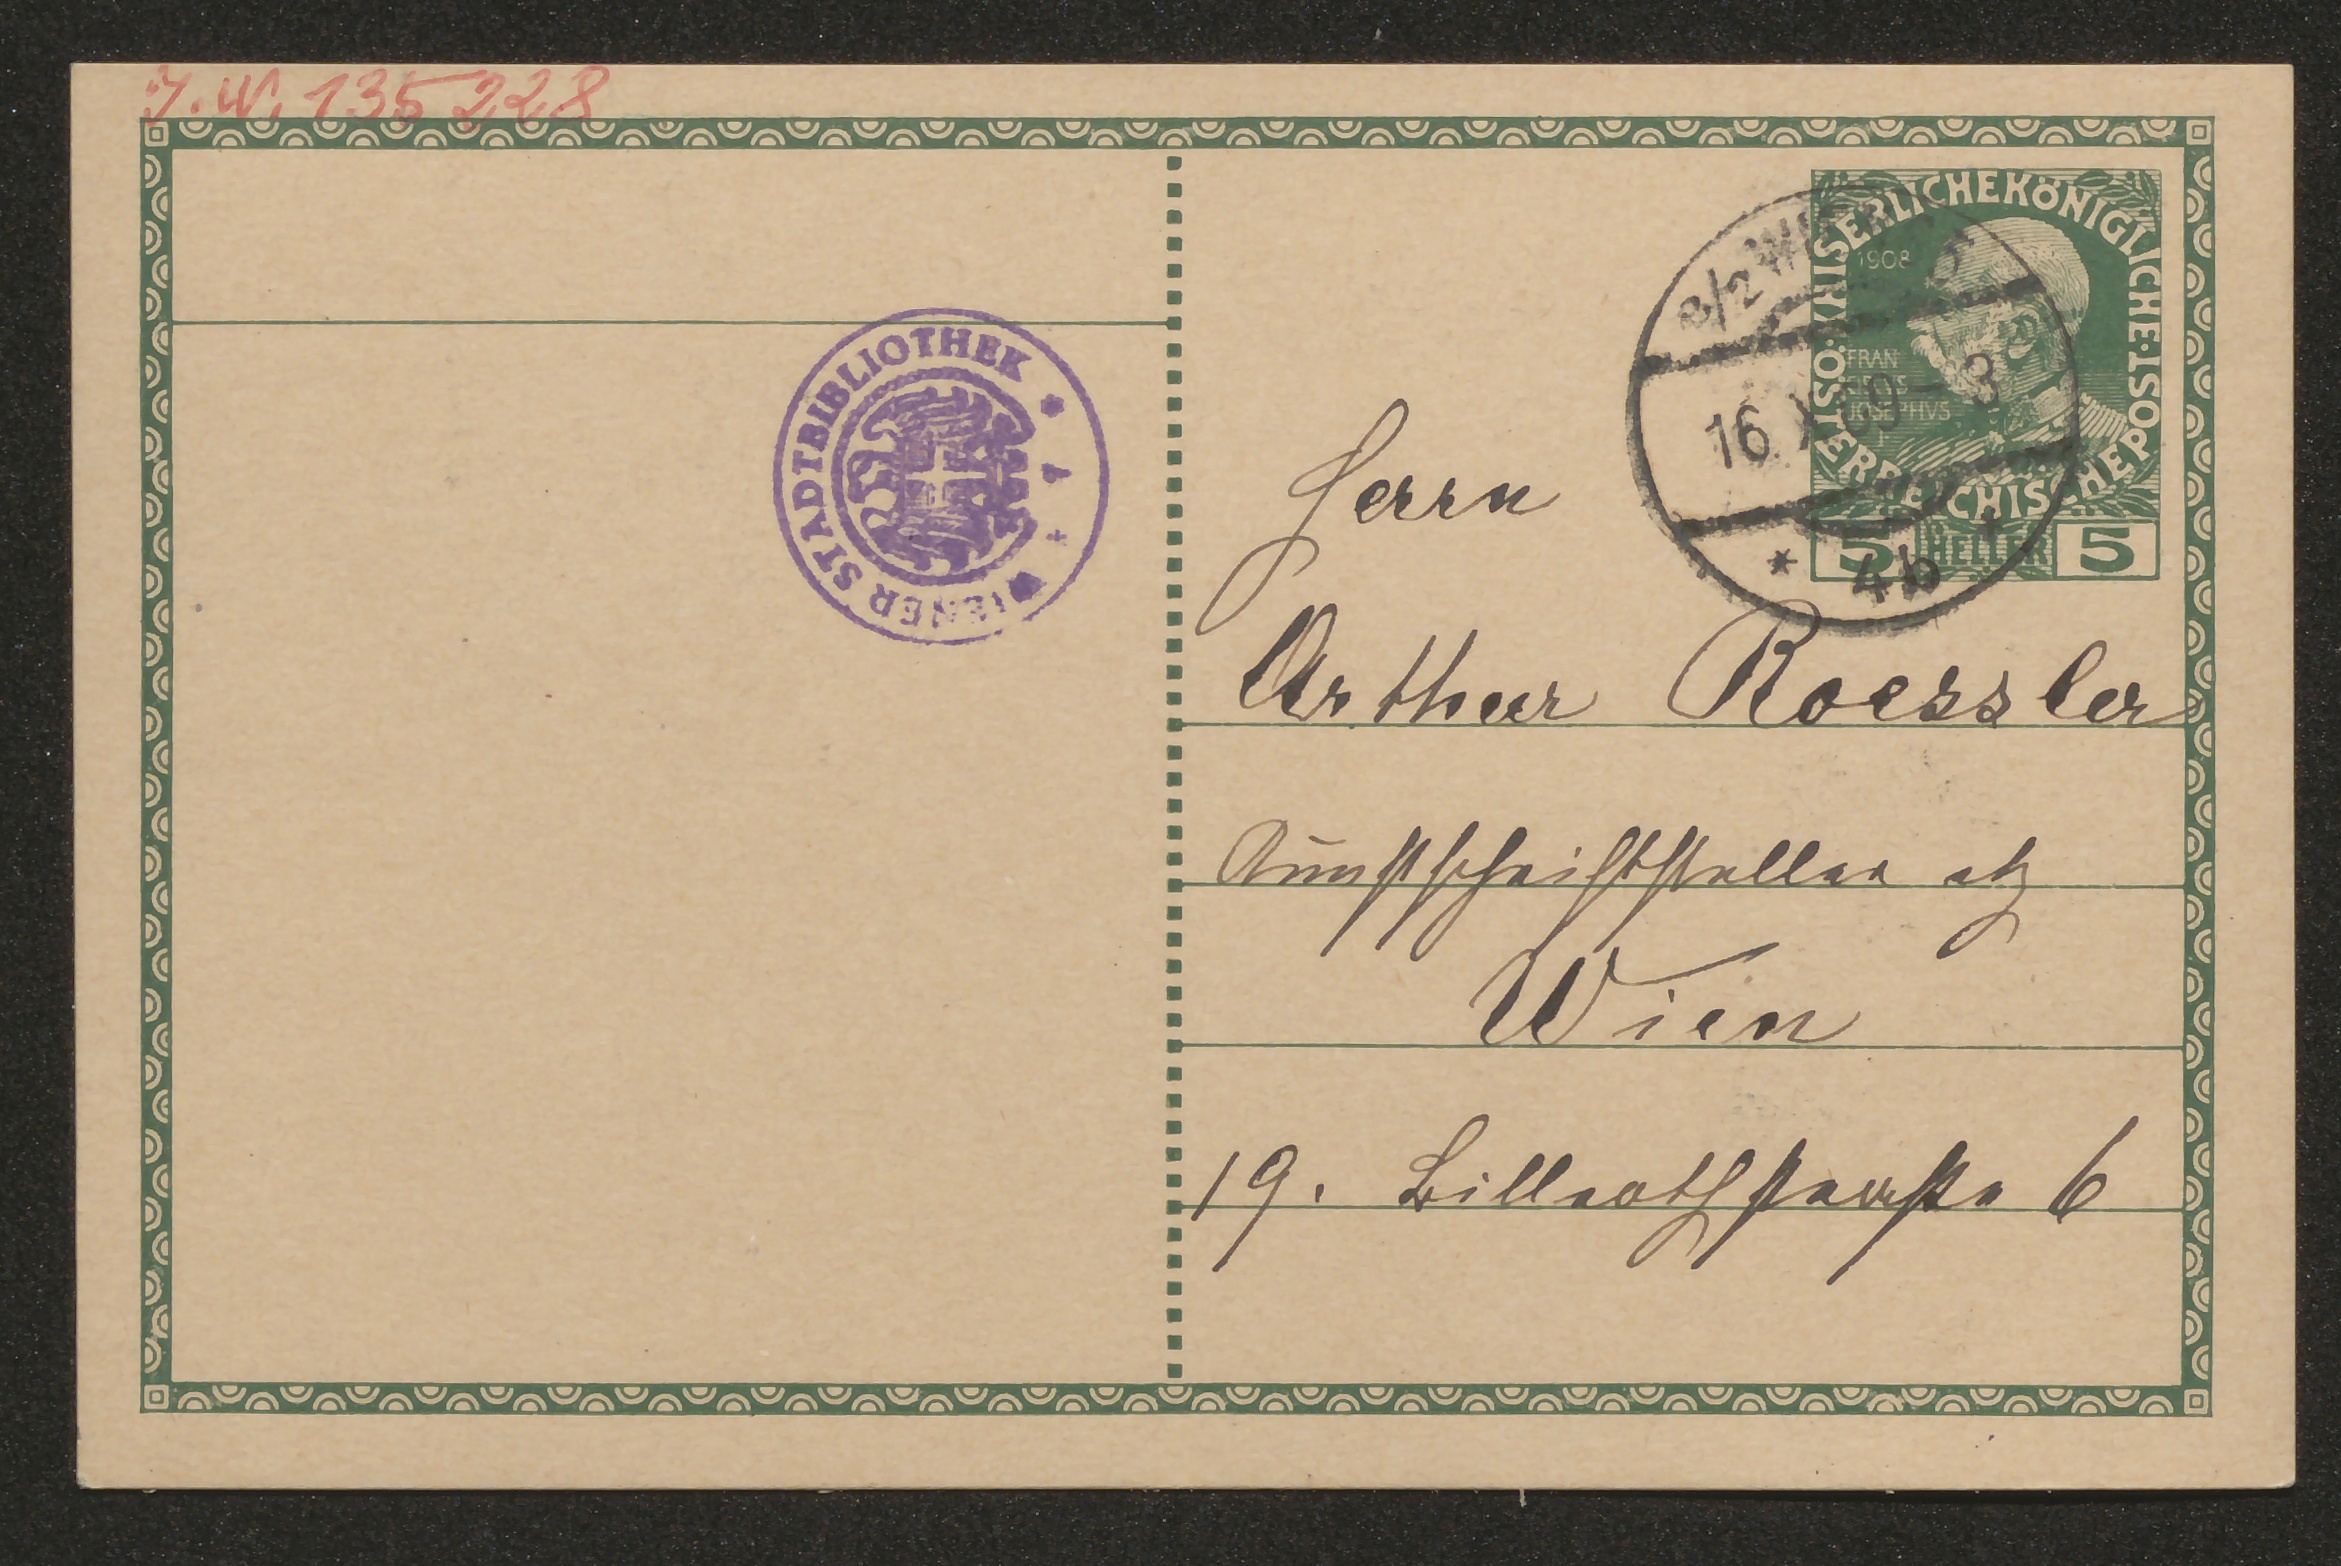 J.N. 135228
WIENER STADTBIBLIOTHEK * 1 *
KAISERLICHE KÖNIGLICHE ÖSTERREICHISCHE POST
1908
FRAN
JOSEPHVS
5 HELLER 5
16 X 09 - 3
* 4b *
Herrn
Arthur Roessler
Kunstschriftsteller etz
Wien
19. Billrothstraße 6